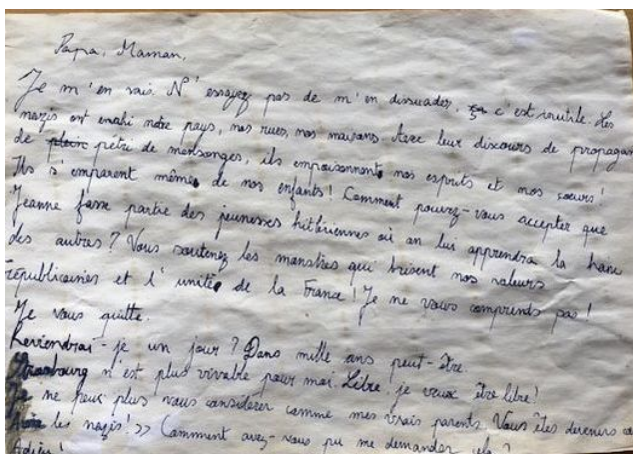 Papa, Maman,
Je m'en vais. N'essayez pas de m'en dissuader, c'est inutile. Les
nazis ont envahi notre pays, nos rues, nos maisons. Avec leur discours de propagan
de plein pétri de mensonges, ils empoisonnent nos esprits et nos coeurs!
Ils s'emparent même de nos enfants! Comment pouvez-vous accepter que
Jeanne fasse partie des jeunesses hitlériennes où on lui apprendra la haine
des autres? Vous soutenez les monstres qui brisent nos valeurs
républicaines et l'unité de la France! Je ne vous comprends pas!
Je vous quitte.
Reviendrai-je un jour? Dans mille ans peut-être.
Strasbourg n'est plus vivable pour moi. Libre, je veux être libre!
Je ne peux plus vous considérer comme mes vrais parents. Vous êtes devenus
les nazis! >> Comment avez-vous pu me demander cela?
Adieu!